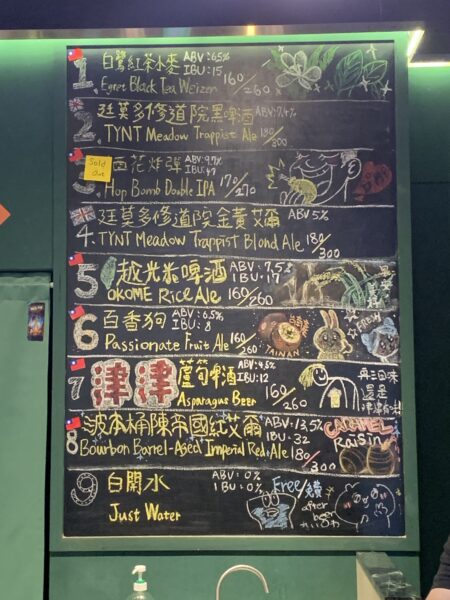 1
白鷺紅茶小麥 ABV:6.5%
IBU:15
Egret Black Tea Weizen 160/260
2
廷莫多修道院黑啤酒 ABV:7.4%
TYNT Meadow Trappist Ale 180/300
Sold Out
ABV:9.7%
Hop Bomb Double IPA 170/270
廷莫多修道院金黃艾爾 ABV 5%
4. TYNT Meadow Trappist Blond Ale 180/300
5 越光米啤酒 ABV:7.5%
IBU:17
OKOME Rice Ale 160/260
6 百香狗 ABV:6.5%
IBU:8
Passionate Fruit Ale 160/260
TAINAN
7 津津 蘆筍啤酒 ABV:4.5%
IBU:12
Asparagus Beer 160/260
再三回味
還是
8 波本桶陳帝國紅艾爾 ABV:13.5%
IBU:32
Bourbon Barrel-Aged Imperial Red Ale 180/300
CARAMEL
Raisin
9 白開水 ABV:0%
IBU:0%
Just Water
Free/續
after
beer